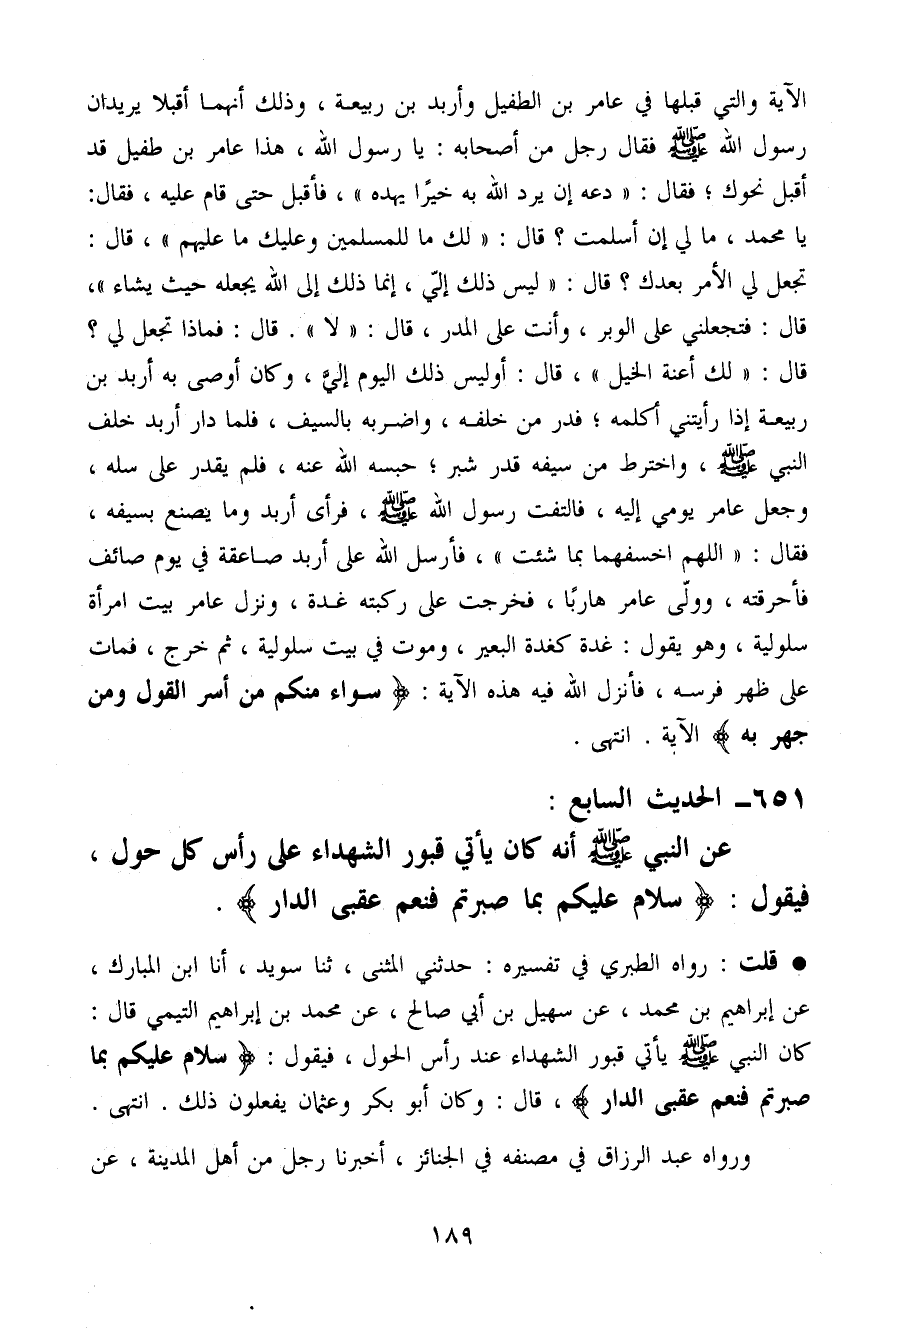 الآية والتي قبلها في عامر بن الطفيل وأربد بن ربيعة ، وذلك أنهما أقبلا يريدان
رسول الله ﷺ فقال رجل من أصحابه : يا رسول الله ، هذا عامر بن طفيل قد
أقبل نحوك ؛ فقال : « دعه إن يرد الله به خيرًا يهده » ، فأقبل حتى قام عليه ، فقال:
يا محمد ، ما لي إن أسلمت ؟ قال : « لك ما للمسلمين وعليك ما عليهم » ، قال :
تجعل لي الأمر بعدك ؟ قال : « ليس ذلك إليّ ، إنما ذلك إلى الله يجعله حيث يشاء »،
قال : فتجعلني على الوبر ، وأنت على المدر ، قال : « لا » . قال : فماذا تجعل لي ؟
قال : « لك أعنة الخيل » ، قال : أوليس ذلك اليوم إليَّ ، وكان أوصى به أربد بن
ربيعة إذا رأيتني أكلمه ؛ فدر من خلفه ، واضربه بالسيف ، فلما دار أربد خلف
النبي ﷺ ، واخترط من سيفه قدر شبر ؛ حبسه الله عنه ، فلم يقدر على سله ،
وجعل عامر يومي إليه ، فالتفت رسول الله ﷺ ، فرأى أربد وما يصنع بسيفه ،
فقال : « اللهم اخسفهما بما شئت » ، فأرسل الله على أربد صاعقة في يوم صائف
فأحرقته ، وولّى عامر هاربًا ، فخرجت على ركبته غدة ، ونزل عامر بيت امرأة
سلولية ، وهو يقول : غدة كغدة البعير ، وموت في بيت سلولية ، ثم خرج ، فمات
على ظهر فرسه ، فأنزل الله فيه هذه الآية : ﴿ سواء منكم من أسر القول ومن
جهر به ﴾ الآية . انتهى .
٦٥١ــ الحديث السابع :
عن النبي ﷺ أنه كان يأتي قبور الشهداء على رأس كل حول ،
فيقول : ﴿ سلام عليكم بما صبرتم فنعم عقبى الدار ﴾ .
● قلت : رواه الطبري في تفسيره : حدثني المثنى ، ثنا سويد ، أنا ابن المبارك ،
عن إبراهيم بن محمد ، عن سهيل بن أبي صالح ، عن محمد بن إبراهيم التيمي قال :
كان النبي ﷺ يأتي قبور الشهداء عند رأس الحول ، فيقول : ﴿ سلام عليكم بما
صبرتم فنعم عقبى الدار ﴾ ، قال : وكان أبو بكر وعثمان يفعلون ذلك . انتهى .
ورواه عبد الرزاق في مصنفه في الجنائز ، أخبرنا رجل من أهل المدينة ، عن
١٨٩